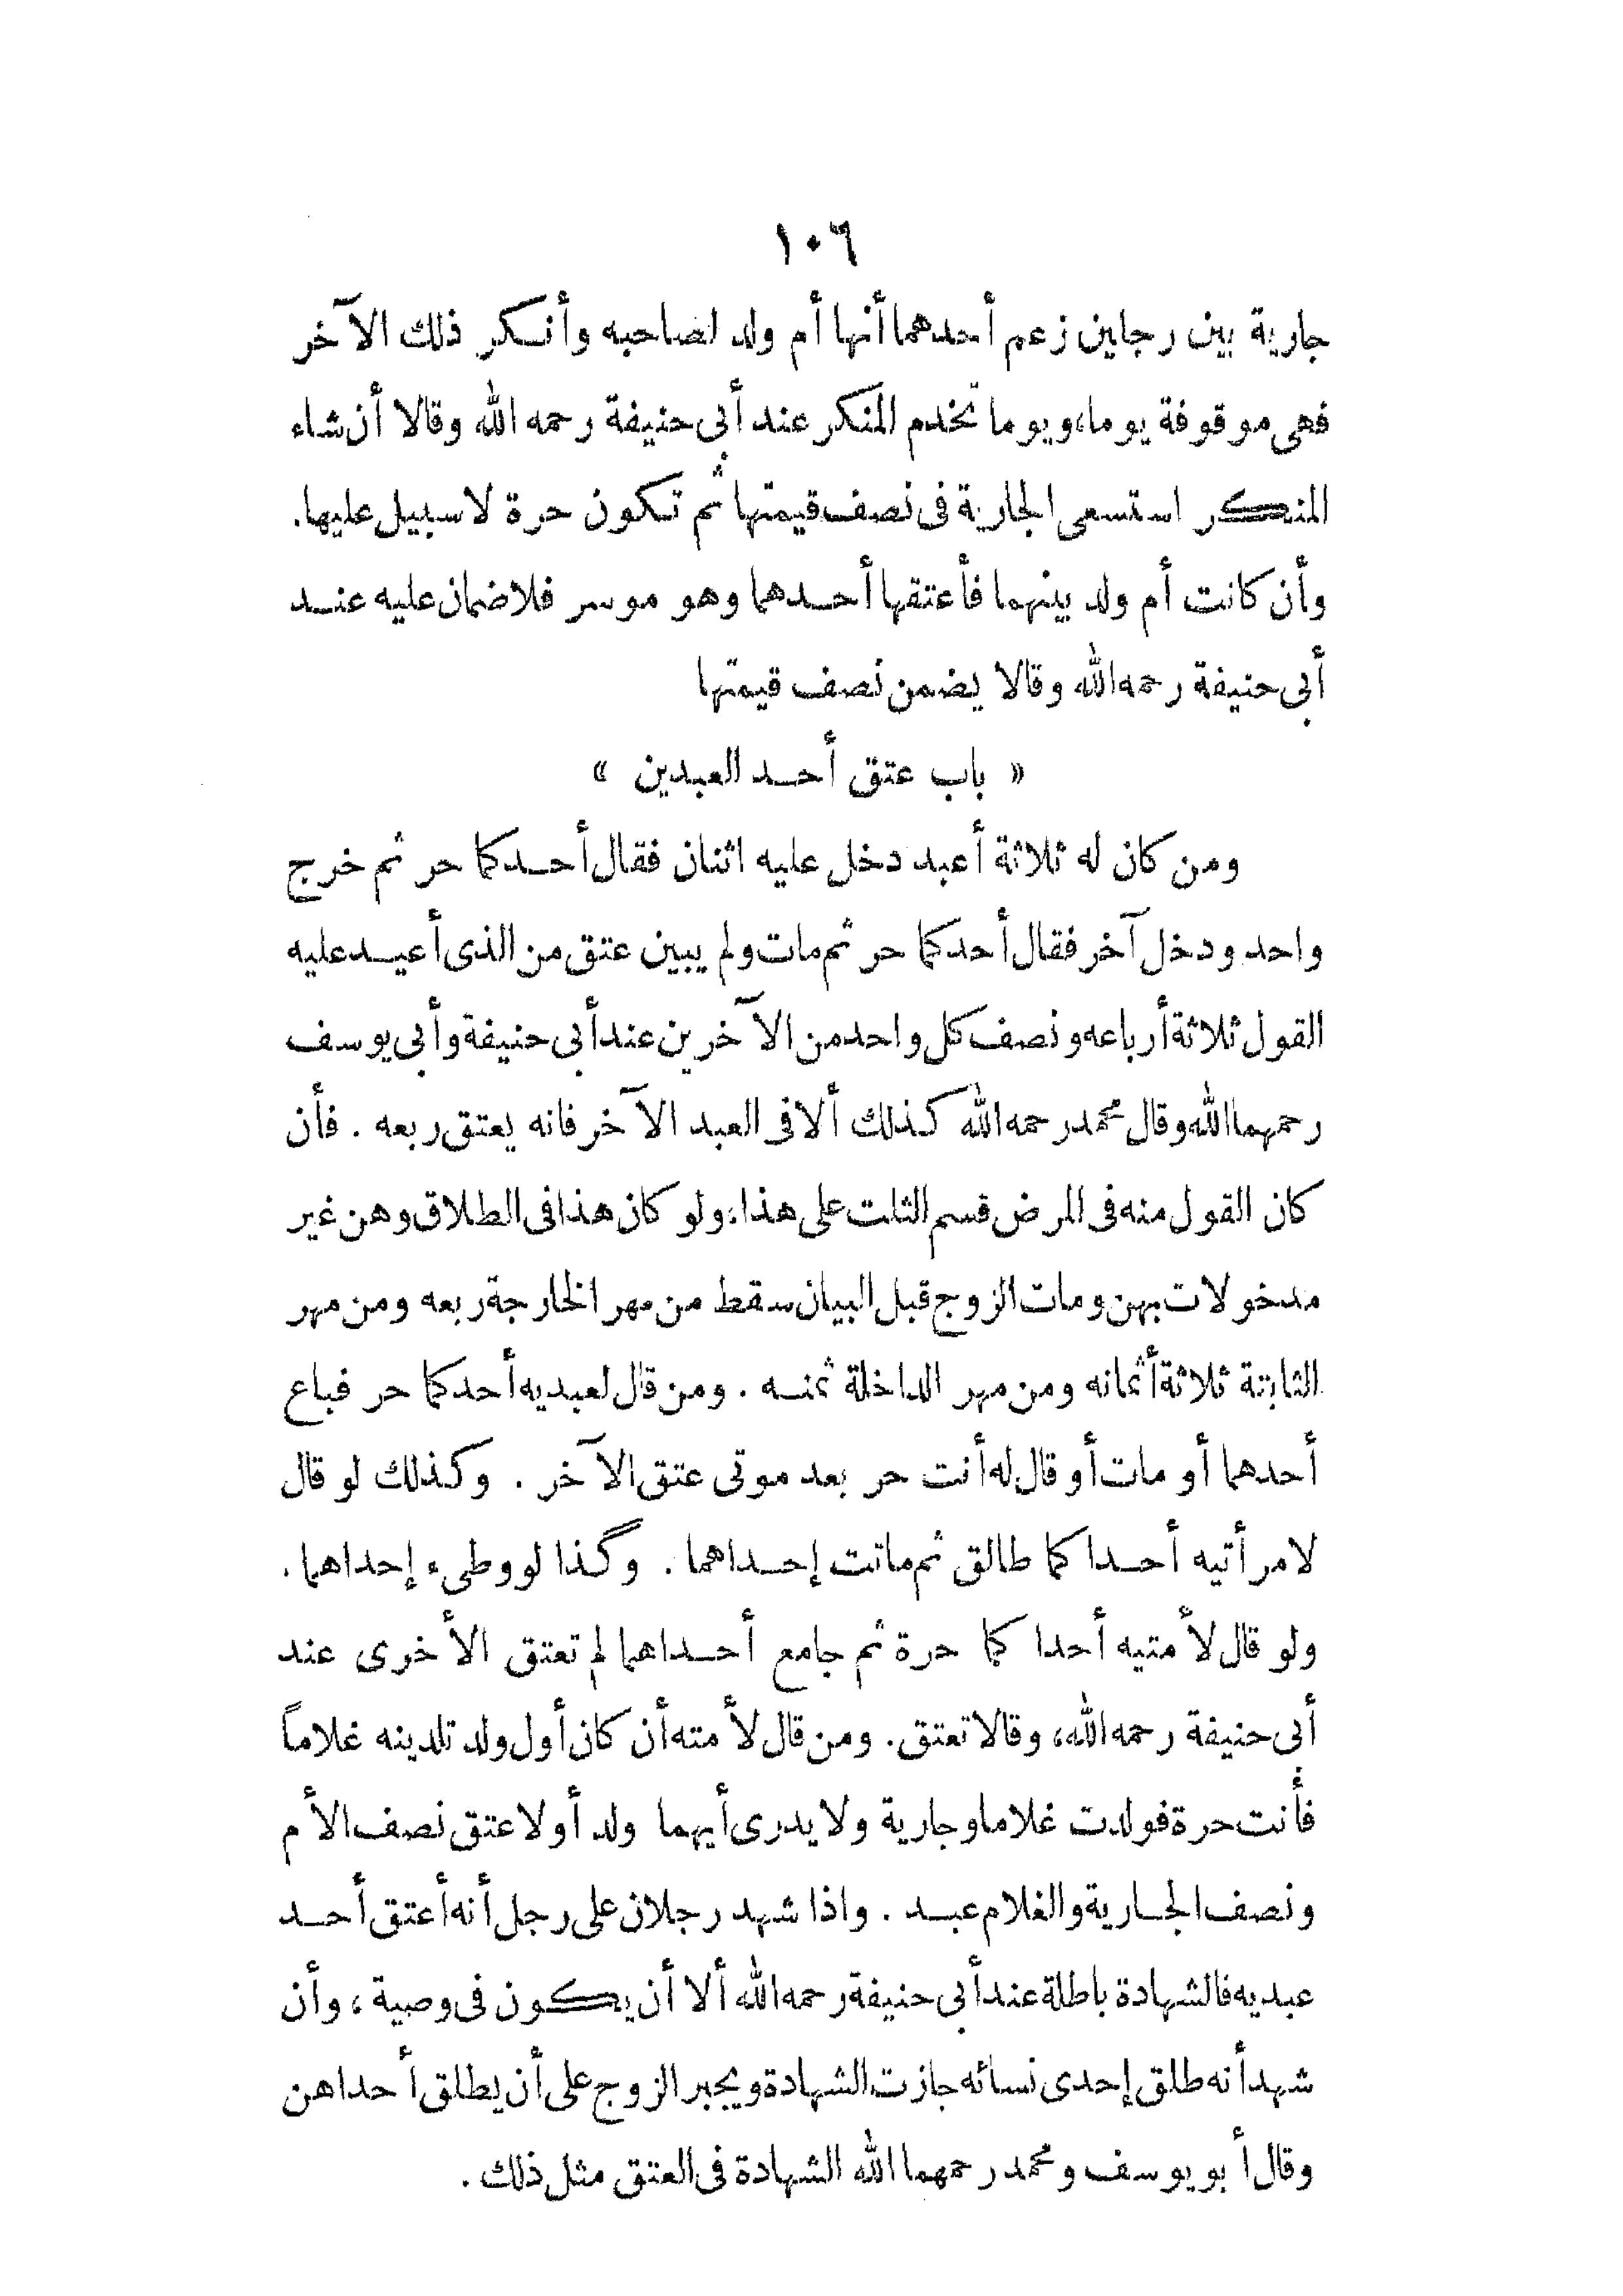 ١٠٦
جارية بين رجلين زعم أحدهما أنها أم ولد لصاحبه وأنكر ذلك الآخر
فهى موقوفة يوما، ويوما تخدم المنكر عند أبى حنيفة رحمه الله وقالا أن شاء
المنكر استسعى الجارية فى نصف قيمتها ثم تكون حرة لا سبيل عليها.
وأن كانت أم ولد بينهما فأعتقها أحدهما وهو موسر فلا ضمان عليه عند
أبى حنيفة رحمه الله وقالا يضمن نصف قيمتها
« باب عتق أحد العبدين »
ومن كان له ثلاثة أعبد دخل عليه اثنان فقال أحدكما حر ثم خرج
واحد ودخل آخر فقال أحدكما حر ثم مات ولم يبين عتق من الذى أعيد عليه
القول ثلاثة أرباعه ونصف كل واحد من الآخرين عند أبى حنيفة وأبى يوسف
رحمهما الله وقال محمد رحمه الله كذلك ألا فى العبد الآخر فانه يعتق ربعه . فأن
كان القول منه فى المرض قسم الثلث على هذا، ولو كان هذا فى الطلاق وهن غير
مدخولات بهن ومات الزوج قبل البيان سقط من مهر الخارجة ربعه ومن مهر
الثابتة ثلاثة أثمانه ومن مهر الداخلة ثمنه . ومن قال لعبديه أحدكما حر فباع
أحدهما أو مات أو قال له أنت حر بعد موتى عتق الآخر . وكذلك لو قال
لامرأتيه أحداكما طالق ثم ماتت إحداهما . وكذا لو وطىء إحداهما .
ولو قال لأمتيه أحداكما حرة ثم جامع أحداهما لم تعتق الأخرى عند
أبى حنيفة رحمه الله، وقالا تعتق. ومن قال لأمته أن كان أول ولد تلدينه غلاماً
فأنت حرة فولدت غلاما وجارية ولا يدرى أيهما ولد أولا عتق نصف الأم
ونصف الجارية والغلام عبد . واذا شهد رجلان على رجل أنه أعتق أحد
عبديه فالشهادة باطلة عند أبى حنيفة رحمه الله ألا أن يكون فى وصية ، وأن
شهد أنه طلق إحدى نسائه جازت الشهادة ويجبر الزوج على أن يطلق أحداهن
وقال أبو يوسف ومحمد رحمهما الله الشهادة فى العتق مثل ذلك .